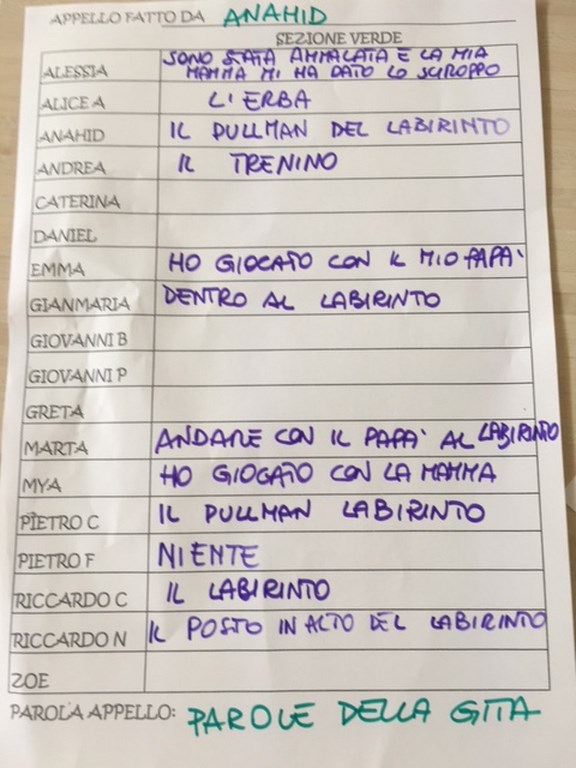 APPELLO FATTO DA ANAHID
SEZIONE VERDE
ALESSIA SONO STATA AMMALATA E LA MIA
MAMMA MI HA DATO LO SCIROPPO
ALICE A L'ERBA
ANAHID IL PULLMAN DEL LABIRINTO
ANDREA IL TRENINO
CATERINA
DANIEL
EMMA HO GIOCATO CON IL MIO PAPA'
GIANMARIA DENTRO AL LABIRINTO
GIOVANNI B
GIOVANNI P
GRETA
MARTA ANDARE CON IL PAPA' AL LABIRINTO
MYA HO GIOCATO CON LA MAMMA
PIETRO C IL PULLMAN LABIRINTO
PIETRO F NIENTE
RICCARDO C IL LABIRINTO
RICCARDO N IL POSTO IN ALTO DEL LABIRINTO
ZOE
PAROLA APPELLO: PAROLE DELLA GITA